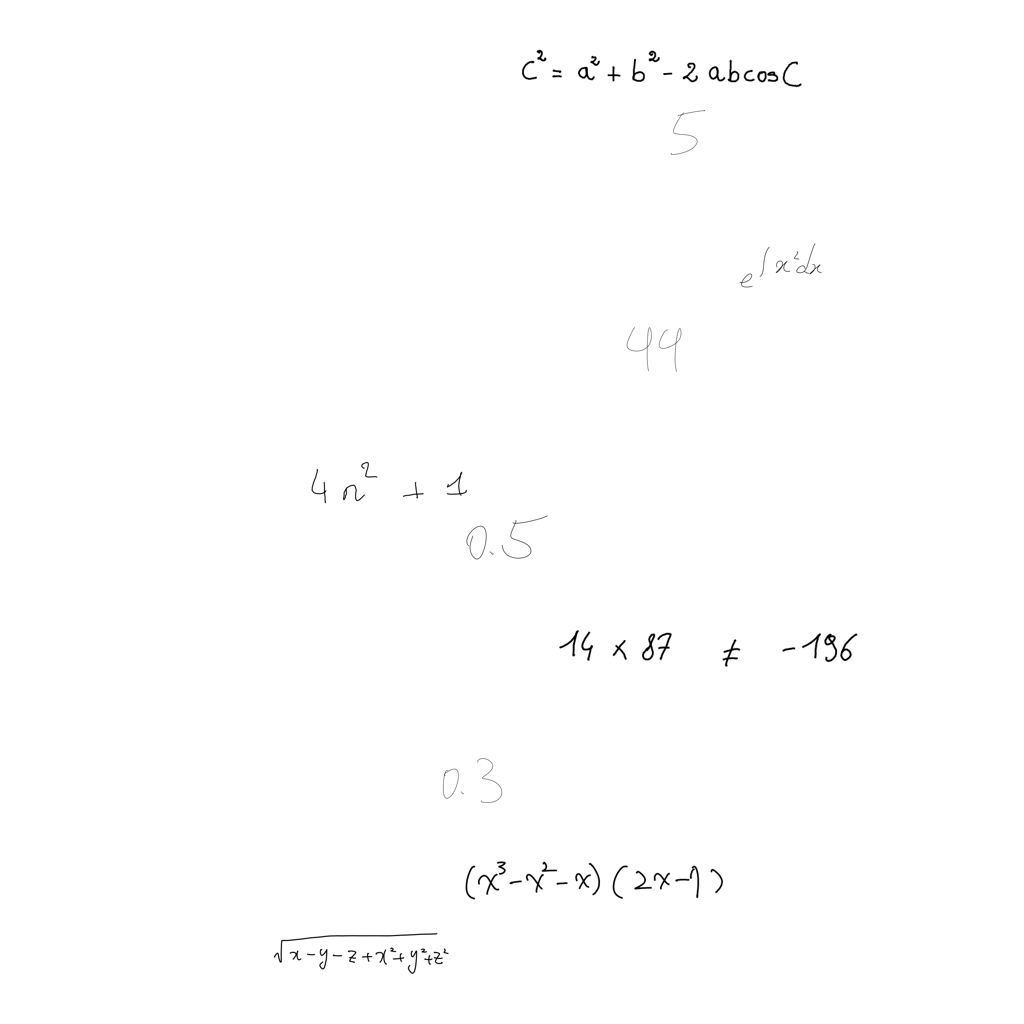 c² = a² + b² - 2abcosC
5
e^∫x²dx
44
4n² + 1
0.5
14 × 87 ≠ -196
0.3
(x³-x²-x)(2x-1)
√(x-y-z+x²+y²+z²)